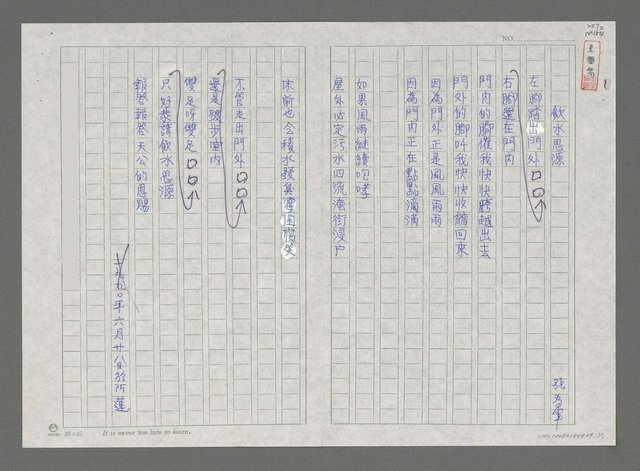 NO.
飲水思源
張
左腳踏出門外□□
右腳還在門內
門內的腳催我快快跨越出去
門外的腳叫我快快收縮回來
因為門外正是風風雨雨
因為門內正在點點滴滴
如果風雨繼續咆哮
屋外必定污水四流淹街浸戶
床前也会積水發臭
不管走出門外□□
還是踱步室內
雙足呀雙足□□
只好恭請飲水思源
報答報答天公的恩賜
一九九〇年六月廿八日於阿蓮
20×25
It is never too late to learn.